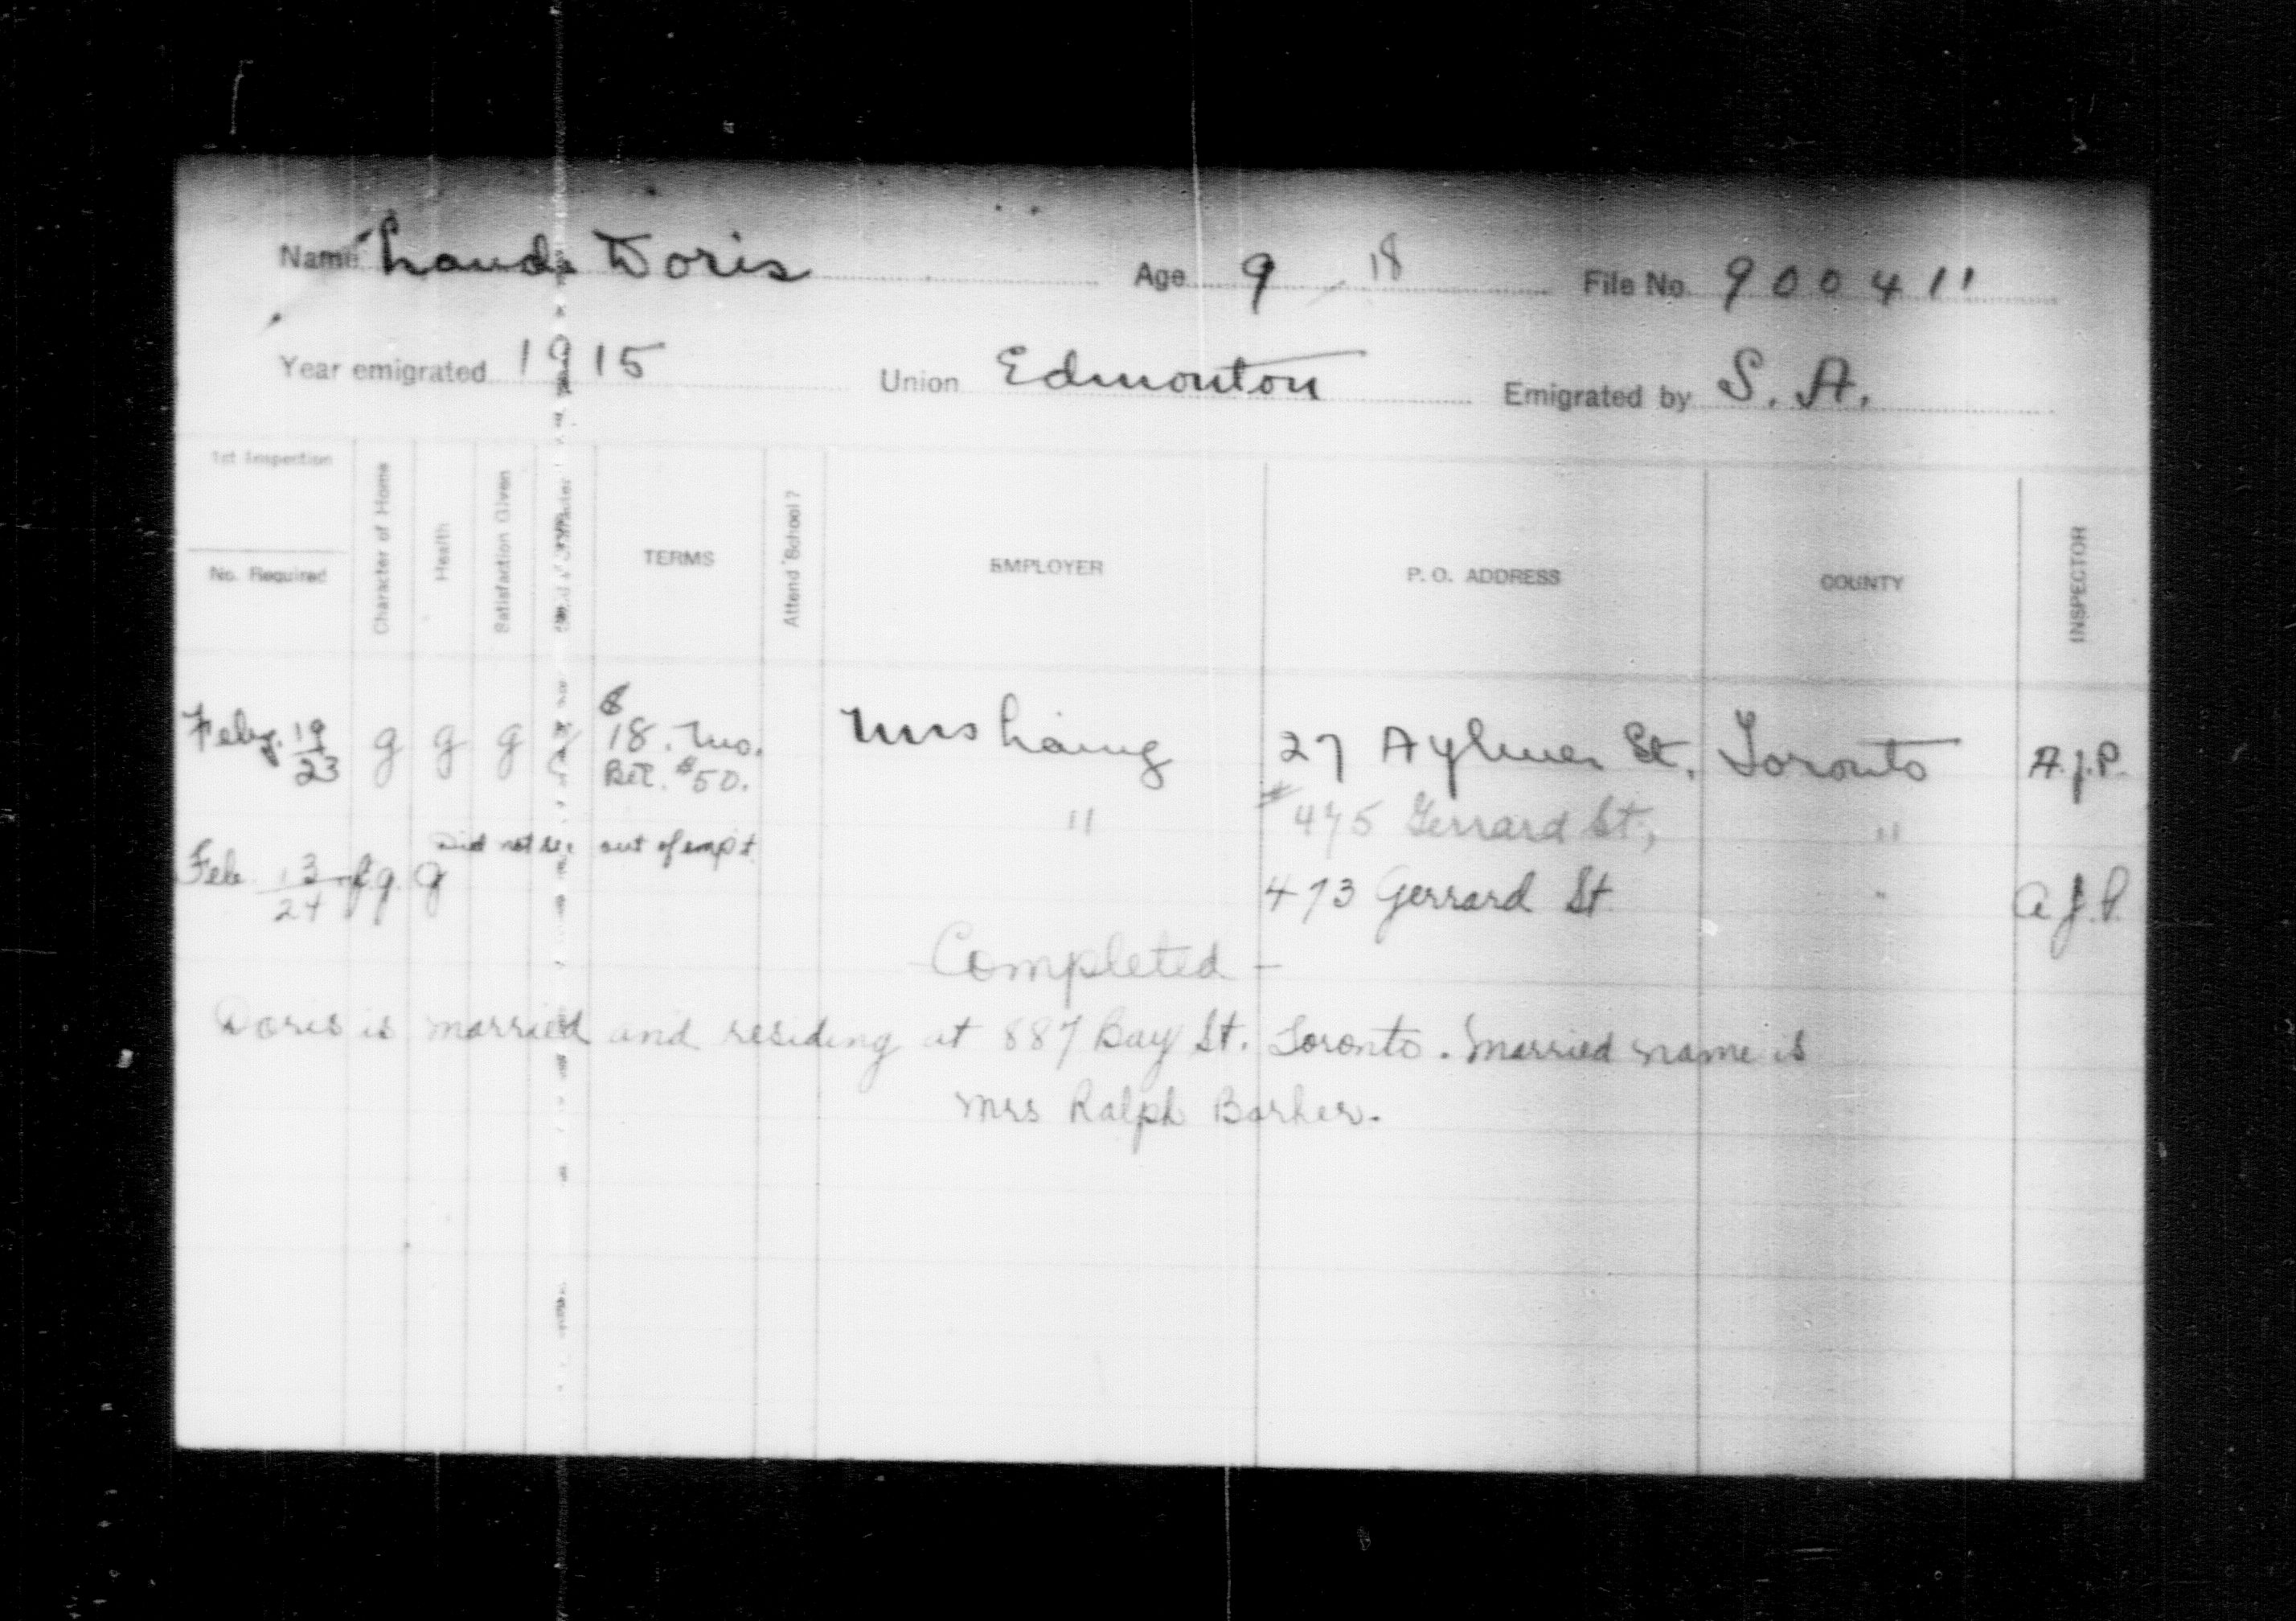 Name Laud Doris Age 9 18 File No. 900411
Year emigrated 1915 Union Edmonton Emigrated by S. A.
1st Inspection
No. Required
Character of Home
Health
Satisfaction Given
TERMS
Attend School?
EMPLOYER
P. O. ADDRESS
COUNTY
INSPECTOR
Feby. 19/23 g g g $18. Mo. Mrs Laing 27 Aylmer St. Toronto A.J.P.
Bet. $50.
" # 475 Gerrard St, "
Did not see out of empt.
Feb. 13/24 fg g 473 Gerrard St " A.J.P.
Completed –
Doris is married and residing at 887 Bay St. Toronto. Married name is
Mrs Ralph Barker.